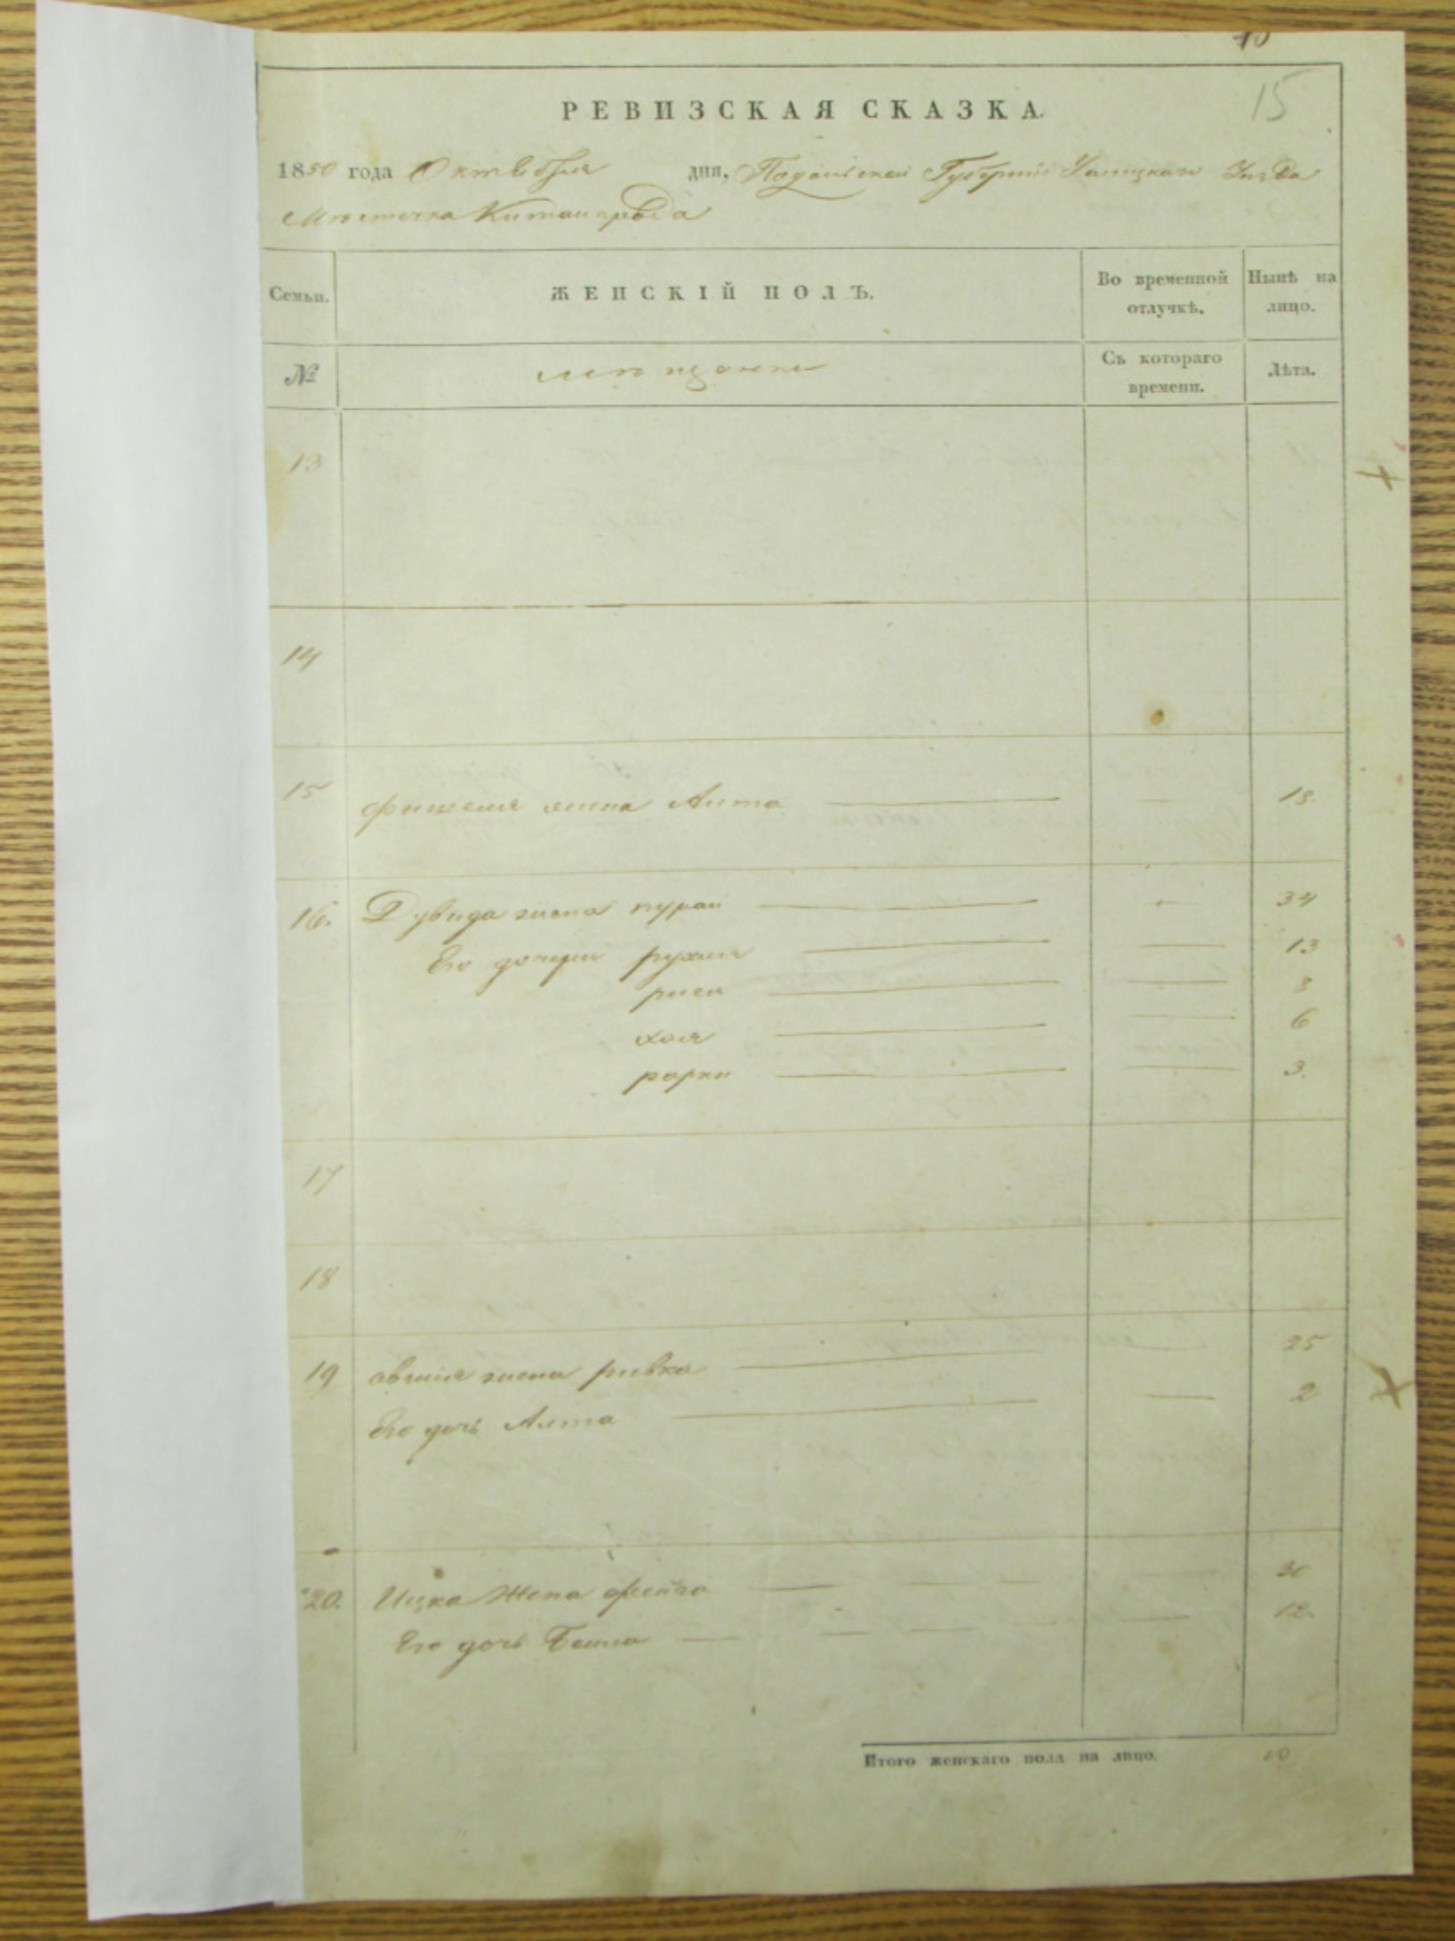 10
15
РЕВИЗСКАЯ СКАЗКА.
1850 года Октября дня, Подольской Губернии Ушицкаго Уезда
Местечка Китайгрода
Семьи. ЖЕНСКІЙ ПОЛЪ. Во временной отлучкѣ. Нынѣ на лицо.
№ мещанки Съ котораго времени. Лѣта.
13
14
15 фишеля жена Анта 18.
16. Дувида жена 34
Его дочери рухля 13
риса 8
хая 6
3.
17
18
19 жена ривка 25
Его дочь Анта 2
20. Ицка Жена фейга 30
Его дочь Бейла 12.
Итого женскаго пола на лицо. 10